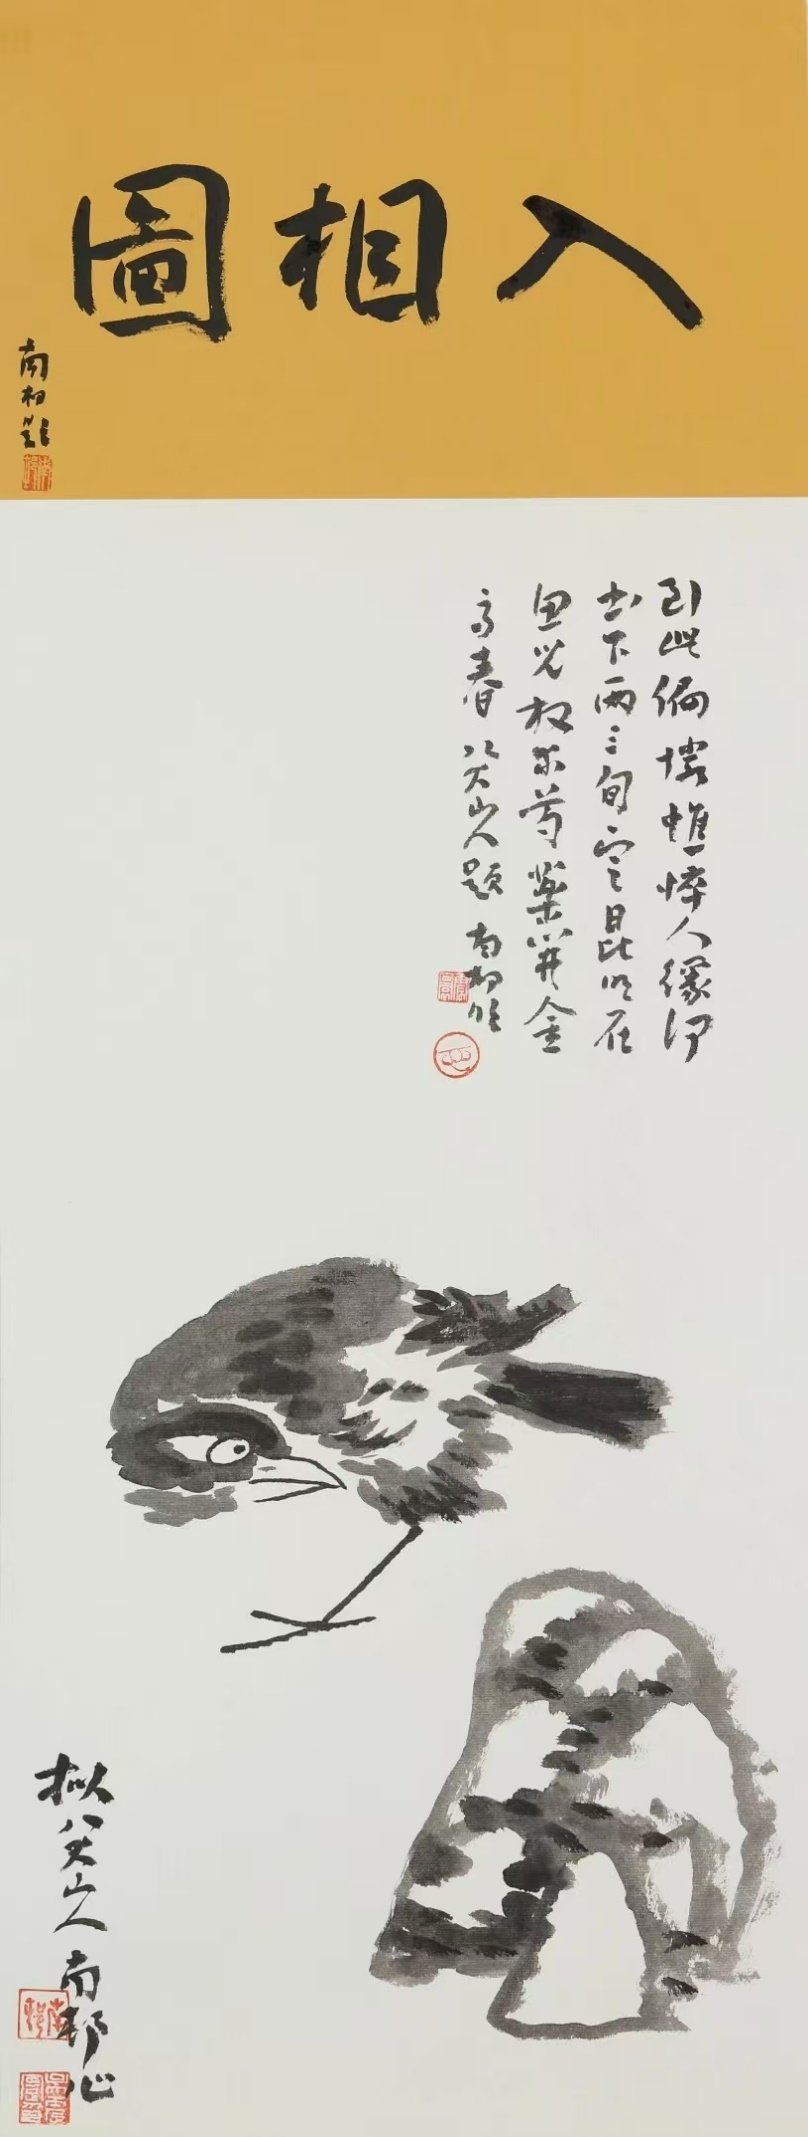 入相圖
南村題
到此偏憐憔悴人緣何
花下兩三旬定昆明在
魚兒放木芍藥開金
高春 八大山人題 南村
拟八大山人 南邨